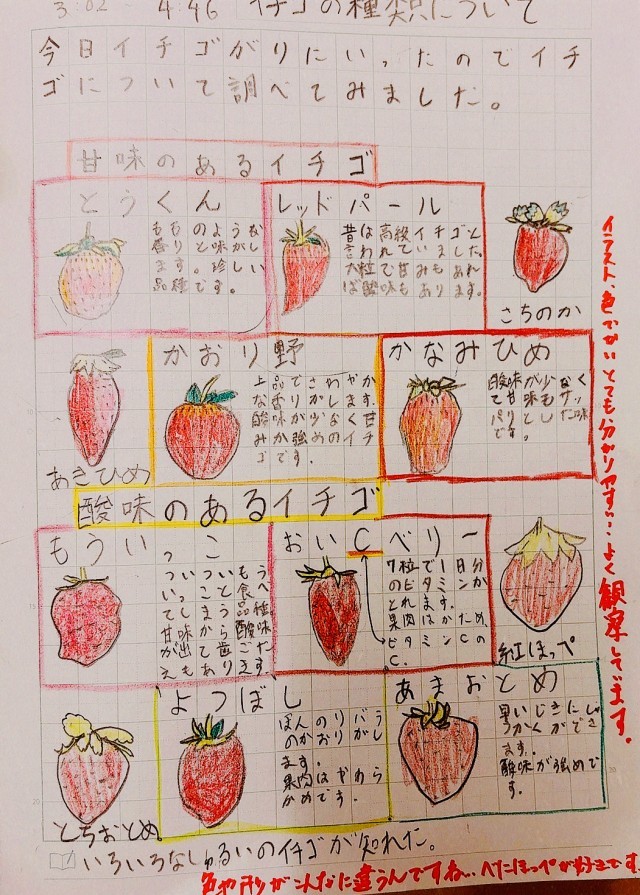 3:02 ~ 4:46
イチゴの種類について
今日イチゴがりにいったのでイチ
ゴについて調べてみました。
甘味のあるイチゴ
とうくん
もものような
香りとうがしい
ます。珍しい
品種です。
レッドパール
昔は高級イチゴと
言われていました。
大粒で甘みもあれ
ば酸味もあります。
さちのか
あきひめ
かおり野
上品でさわやか
な香りがします。
酸味が少なく甘
みが強めのイチ
ゴです。
かなみひめ
酸味が少なく
て甘味もサッ
パリとした味
です。
酸味のあるイチゴ
もういっこ
おいCベリー
7粒で一日分
のビタミンが
とれます。
果肉はかため。
ビタミンCの
C.
紅ほっぺ
とちおとめ
よつぼし
ほんのりバ
のかおりがし
ます。
果肉はやわら
かめです。
あまおとめ
早いじきにしゅ
うかくができ
ます。
酸味が強めで
す。
いろいろなしゅるいのイチゴが知れた。
イラスト、色づかいとても分かりやすい…よく観察してます。
色や形がこんなに違うんですね…べにほっぺが好きです